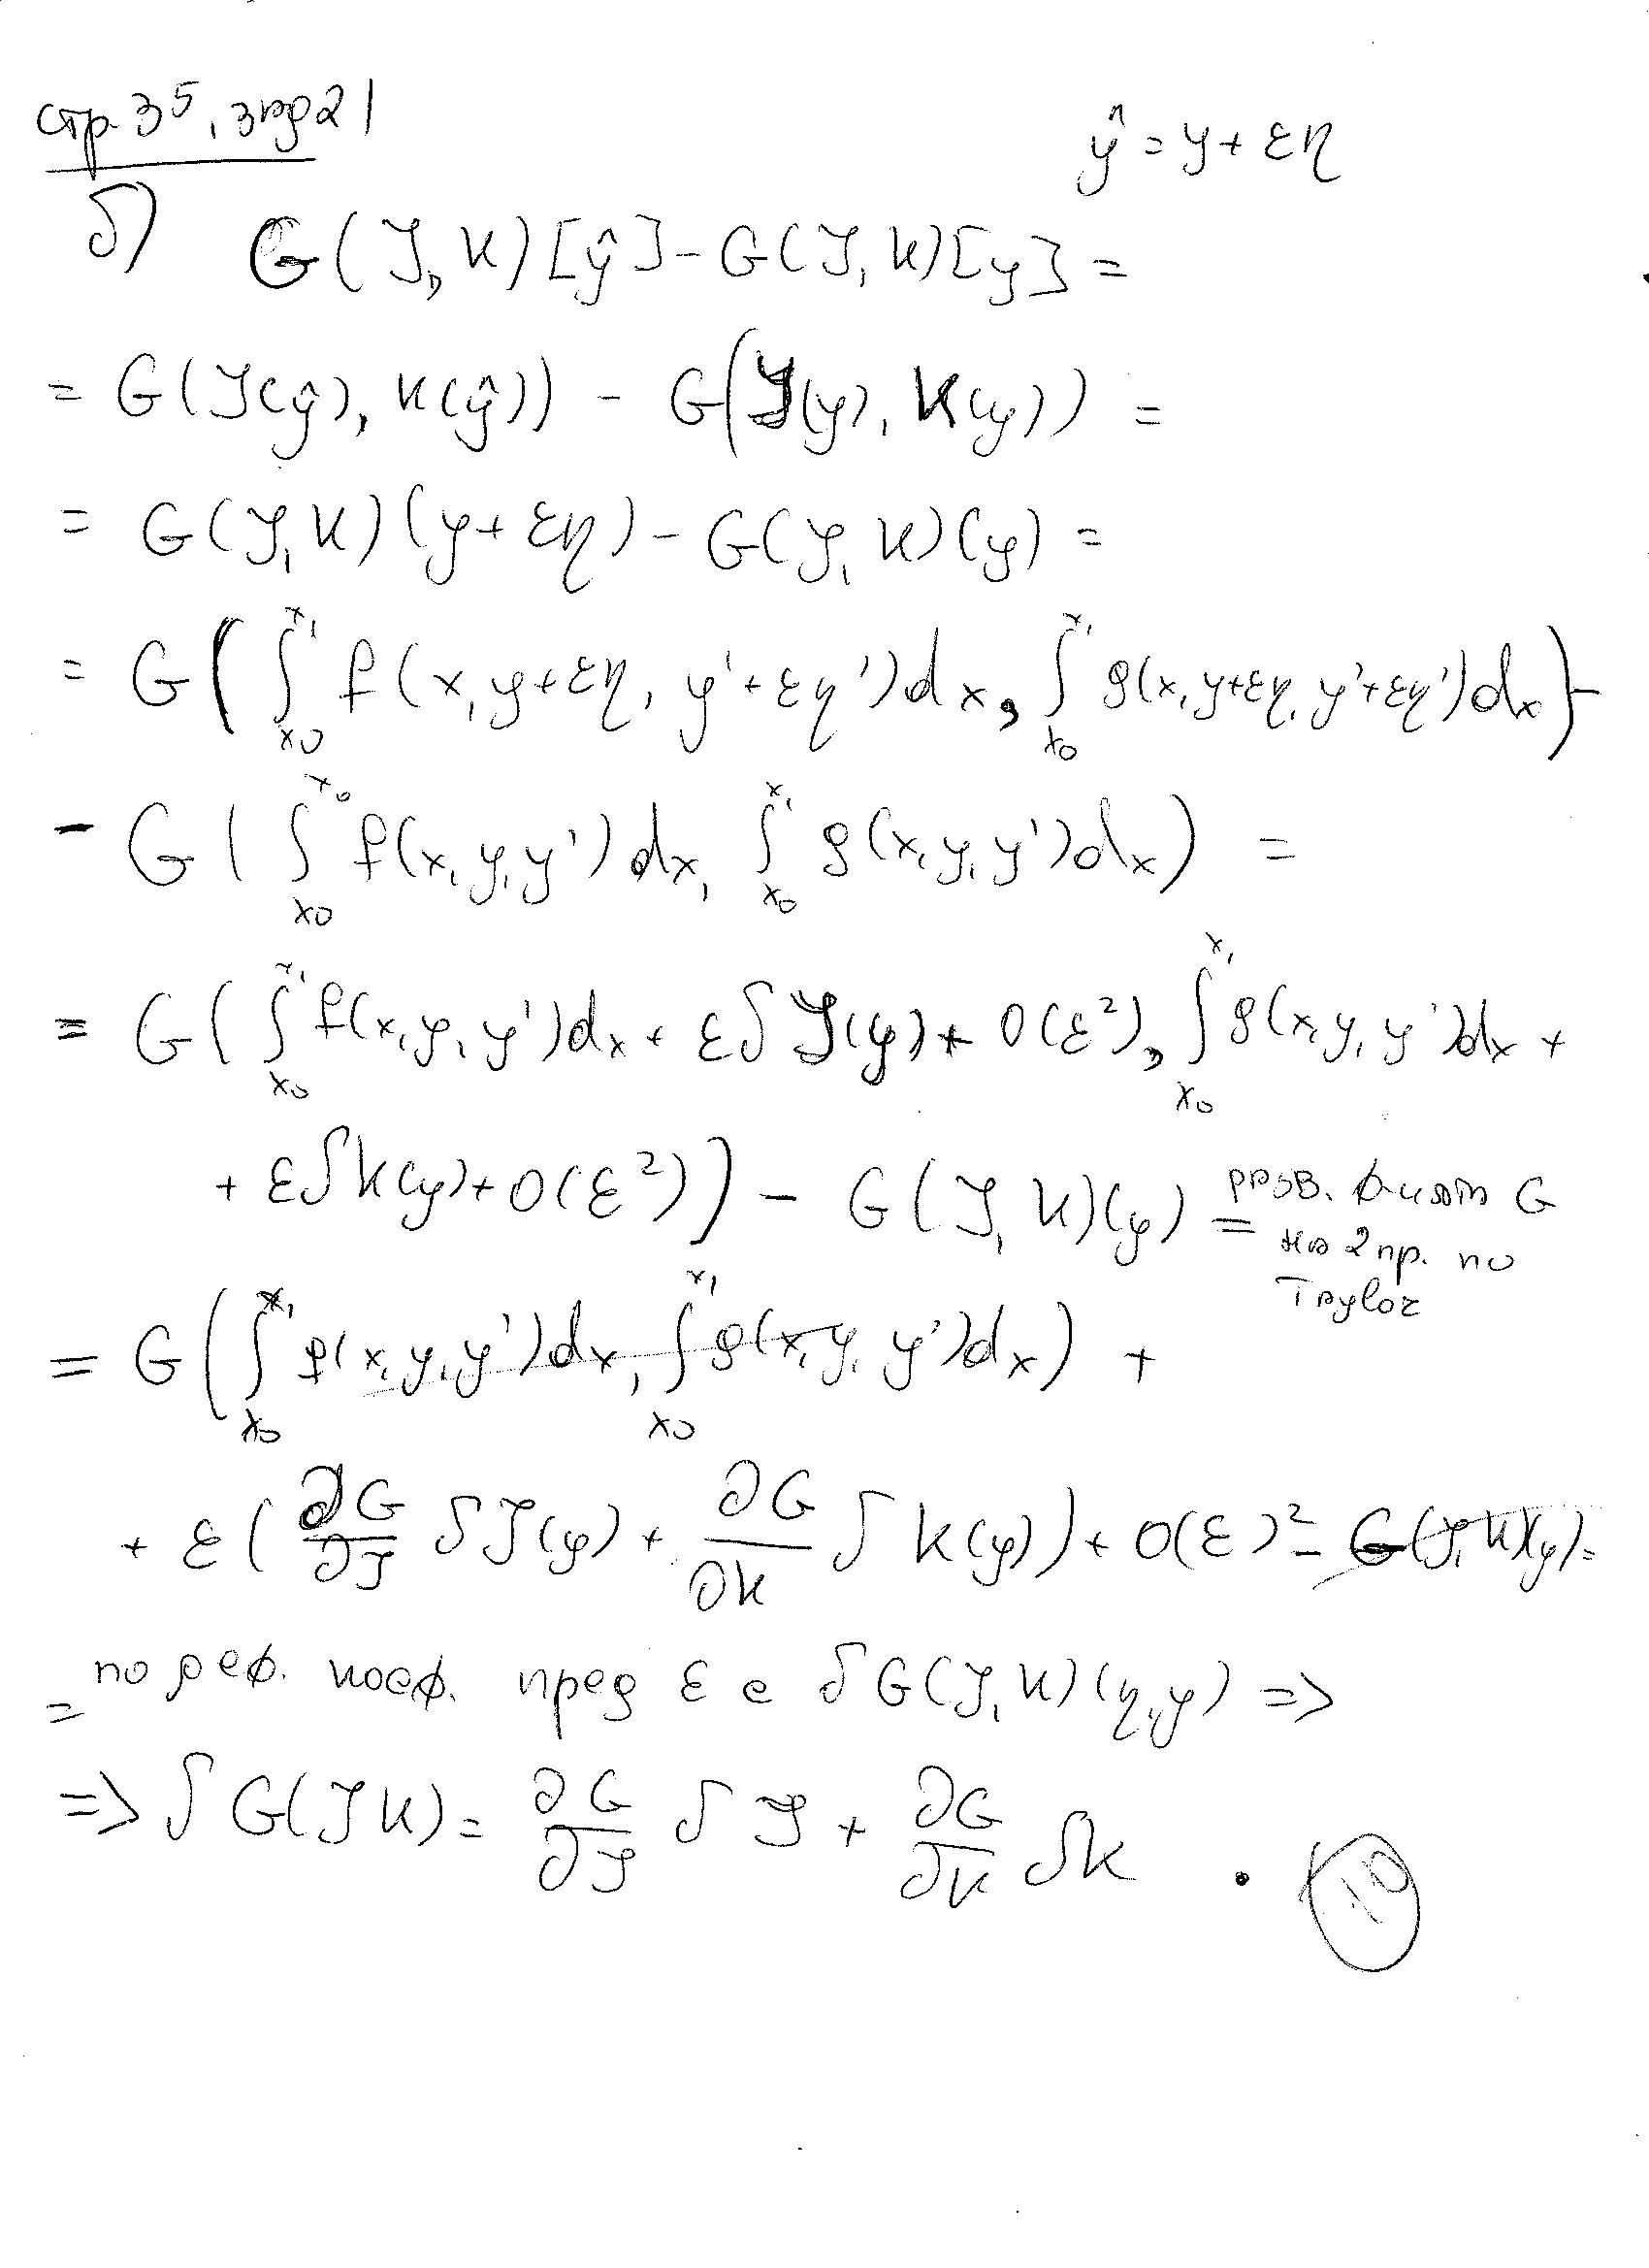 стр. 35, зад 21
ŷ = y + εη
б) G(J, K)[ŷ] - G(J, K)[y] =
= G(J(ŷ), K(ŷ)) - G(J(y), K(y)) =
= G(J, K)(y + εη) - G(J, K)(y) =
= G(∫_{x0}^{x1} f(x, y+εη, y'+εη')dx, ∫_{x0}^{x1} g(x, y+εη, y'+εη')dx) -
- G(∫_{x0}^{x0} f(x, y, y')dx, ∫_{x0}^{x1} g(x, y, y')dx) =
= G(∫_{x0}^{x1} f(x, y, y')dx + εδJ(y) + O(ε²), ∫_{x0}^{x1} g(x, y, y')dx +
+ εδK(y) + O(ε²)) - G(J, K)(y) = разв. G
на 2 пр. по
Taylor
= G(∫_{x0}^{x1} f(x, y, y')dx, ∫_{x0}^{x1} g(x, y, y')dx) +
+ ε(∂G/∂J δJ(y) + ∂G/∂K δK(y)) + O(ε)² - G(J, K)(y) =
= по деф. коеф. пред ε е δG(J, K)(η, y) =>
=> δG(J K) = ∂G/∂J δJ + ∂G/∂K δK .
10